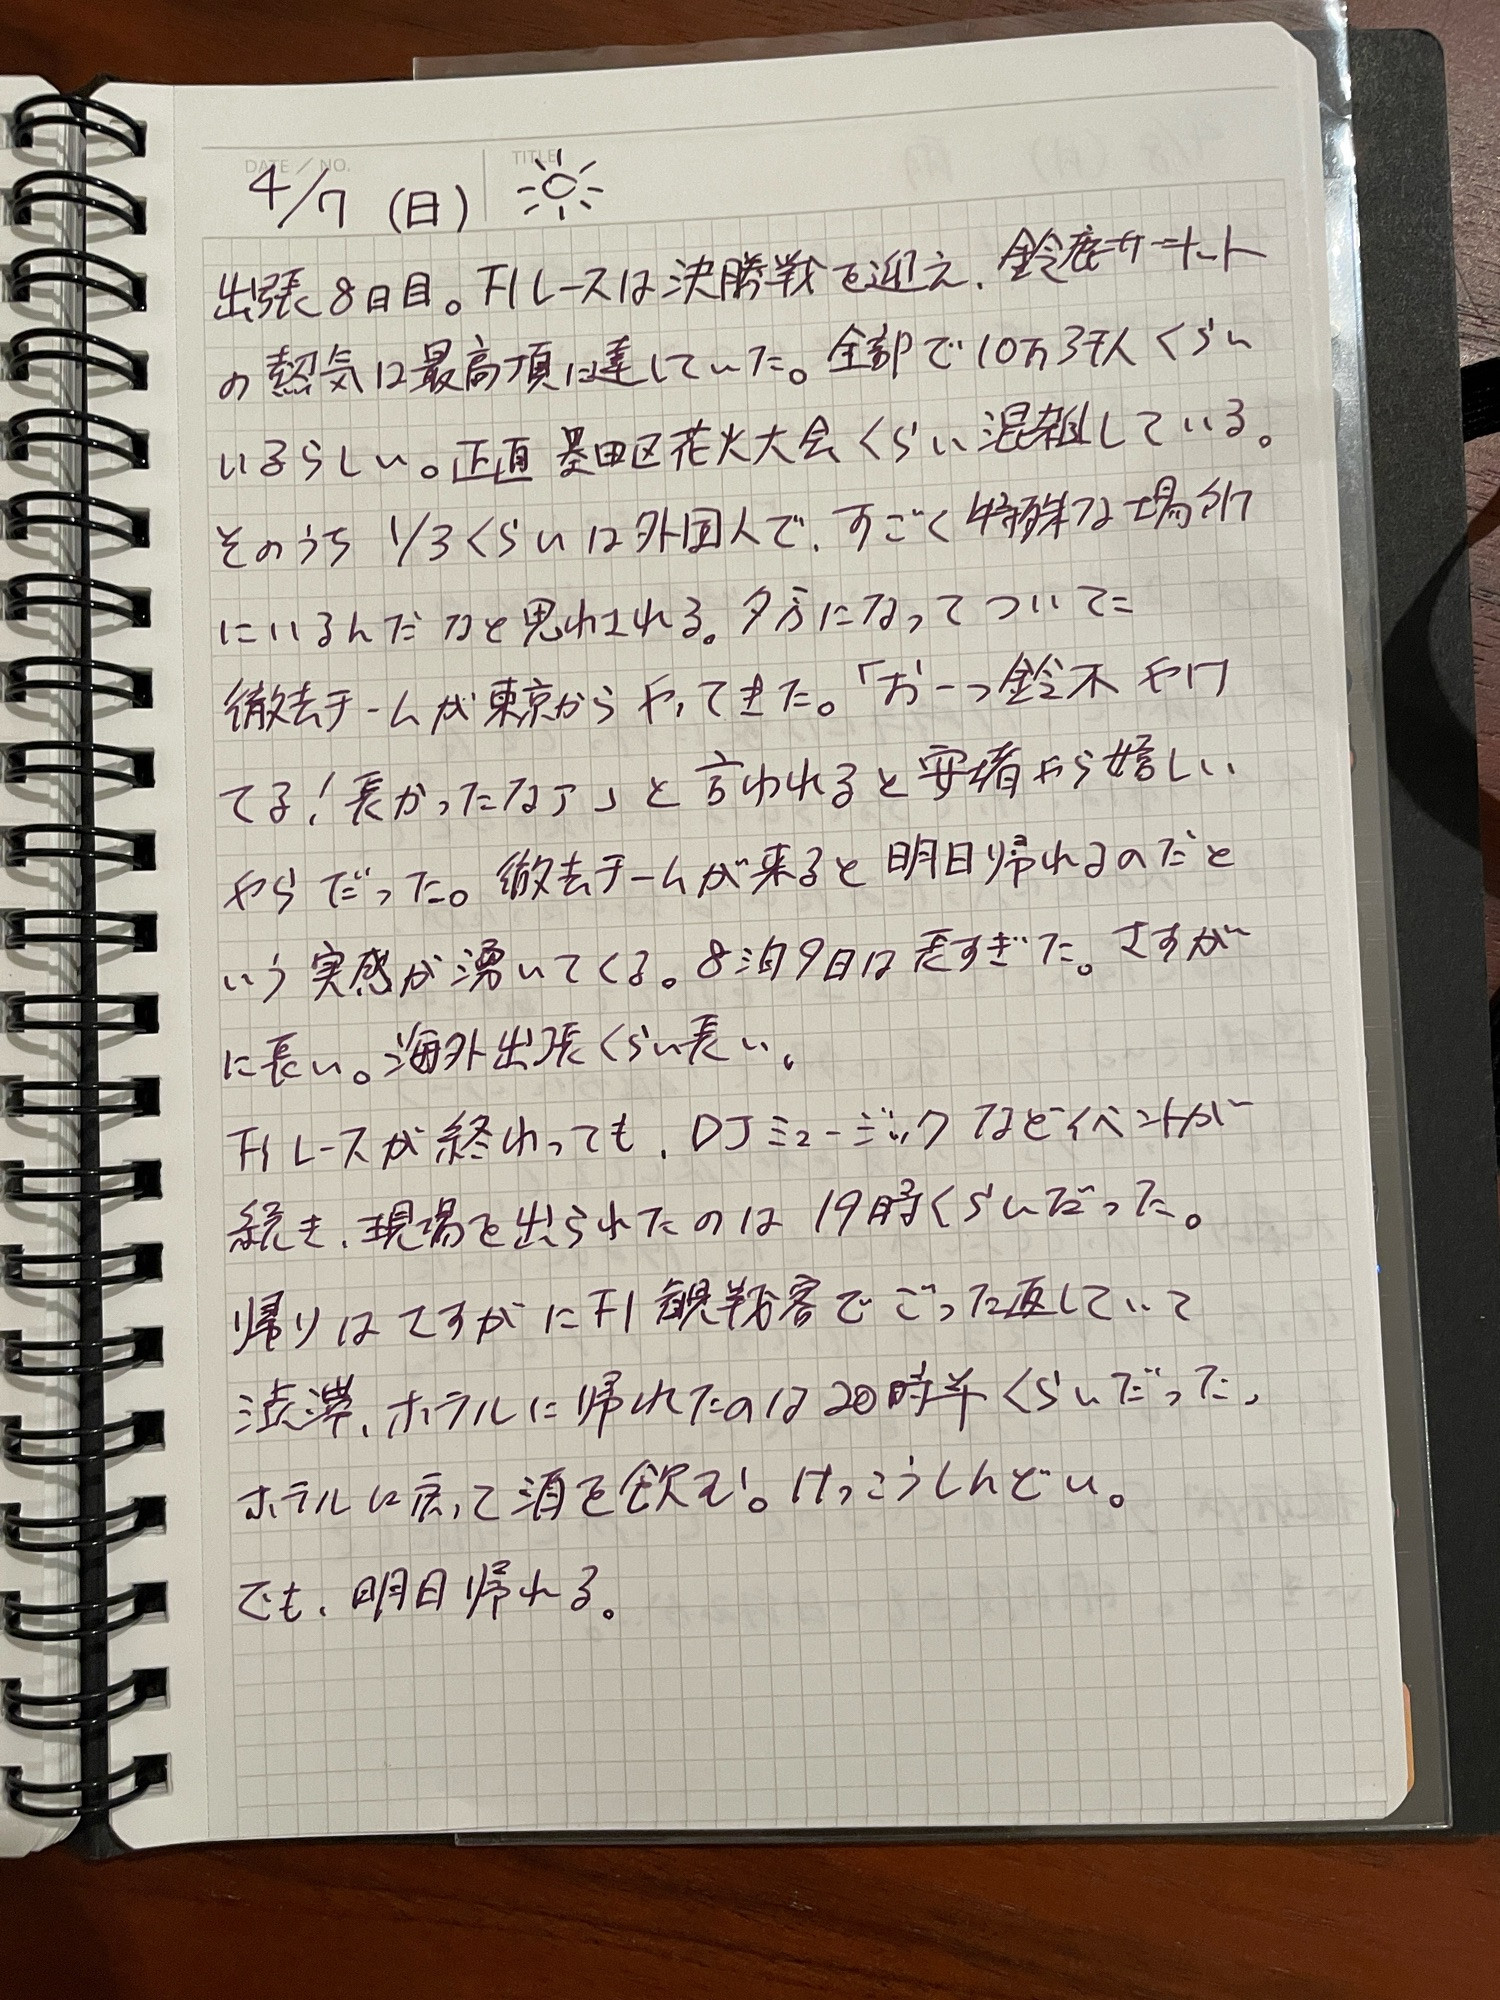 DATE / NO.
TITLE
4/7 (日)
出張8日目。F1レースは決勝戦を迎え、鈴鹿サーキット
の熱気は最高頂に達していた。全部で10万3千人くらい
いるらしい。正直墨田区花火大会くらい混雑している。
そのうち 1/3くらいは外国人で、すごく特殊な場所
にいるんだなと思わされる。夕方になってついに
撤去チームが東京からやってきた。「おーっ鈴木やけ
てる!長かったなァ」と言われると安堵やら嬉しい
やらだった。撤去チームが来ると明日帰れるのだと
いう実感が湧いてくる。8泊9日は長すぎた。さすが
に長い。海外出張くらい長い。
F1レースが終わっても、DJミュージックなどイベントが
続き、現場を出られたのは19時くらいだった。
帰りはさすがにF1観戦客でごった返していて
渋滞、ホテルに帰れたのは20時半くらいだった。
ホテルに戻って酒を飲む。けっこうしんどい。
でも、明日帰れる。